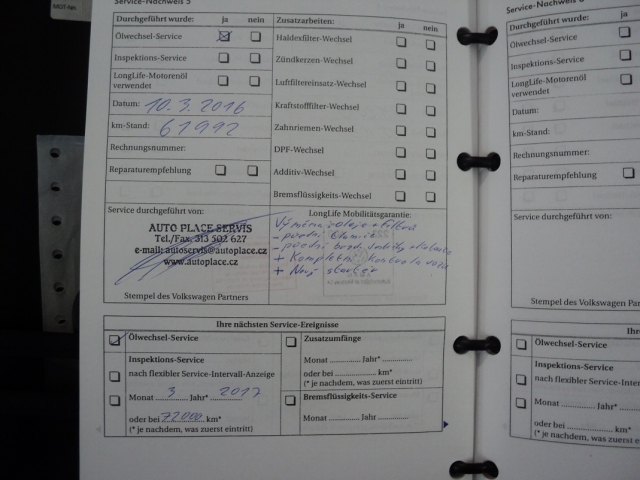 MOT-Nr.
Service-Nachweis 5
Durchgeführt wurde: ja nein
Ölwechsel-Service
Inspektions-Service
LongLife-Motorenöl
verwendet
Datum: 10.3.2016
km-Stand: 61992
Rechnungsnummer:
Reparaturempfehlung
Zusatzarbeiten: ja nein
Haldexfilter-Wechsel
Zündkerzen-Wechsel
Luftfiltereinsatz-Wechsel
Kraftstofffilter-Wechsel
Zahnriemen-Wechsel
DPF-Wechsel
Additiv-Wechsel
Bremsflüssigkeits-Wechsel
Service durchgeführt von:
AUTO PLACE SERVIS
Tel./Fax. 313 502 627
e-mail: autoservis@autoplace.cz
www.autoplace.cz
Stempel des Volkswagen Partners
LongLife Mobilitätsgarantie:
Výměna oleje + filtrů
- přední
- přední brzd.
+ Kompletní kontrola vozu
+ Nový startér
Ihre nächsten Service-Ereignisse
Ölwechsel-Service
Inspektions-Service
nach flexibler Service-Intervall-Anzeige
Monat 3 Jahr* 2017
oder bei 72000 km*
(* je nachdem, was zuerst eintritt)
Zusatzumfänge
Monat .............. Jahr* ..............
oder bei .................... km*
(* je nachdem, was zuerst eintritt)
Bremsflüssigkeits-Service
Monat .............. Jahr ..............
Service-Nachweis 6
Durchgeführt wurde:
Ölwechsel-Service
Inspektions-Service
LongLife-Motorenöl
verwendet
Datum:
km-Stand:
Rechnungsnummer:
Reparaturempfehlung
Service durchgeführt von:
Stempel des Volkswagen
Ihre
Ölwechsel-Service
Inspektions-Service
nach flexibler Service-Inter
Monat .............. Jahr*
oder bei .................... km*
(* je nachdem, was zuerst